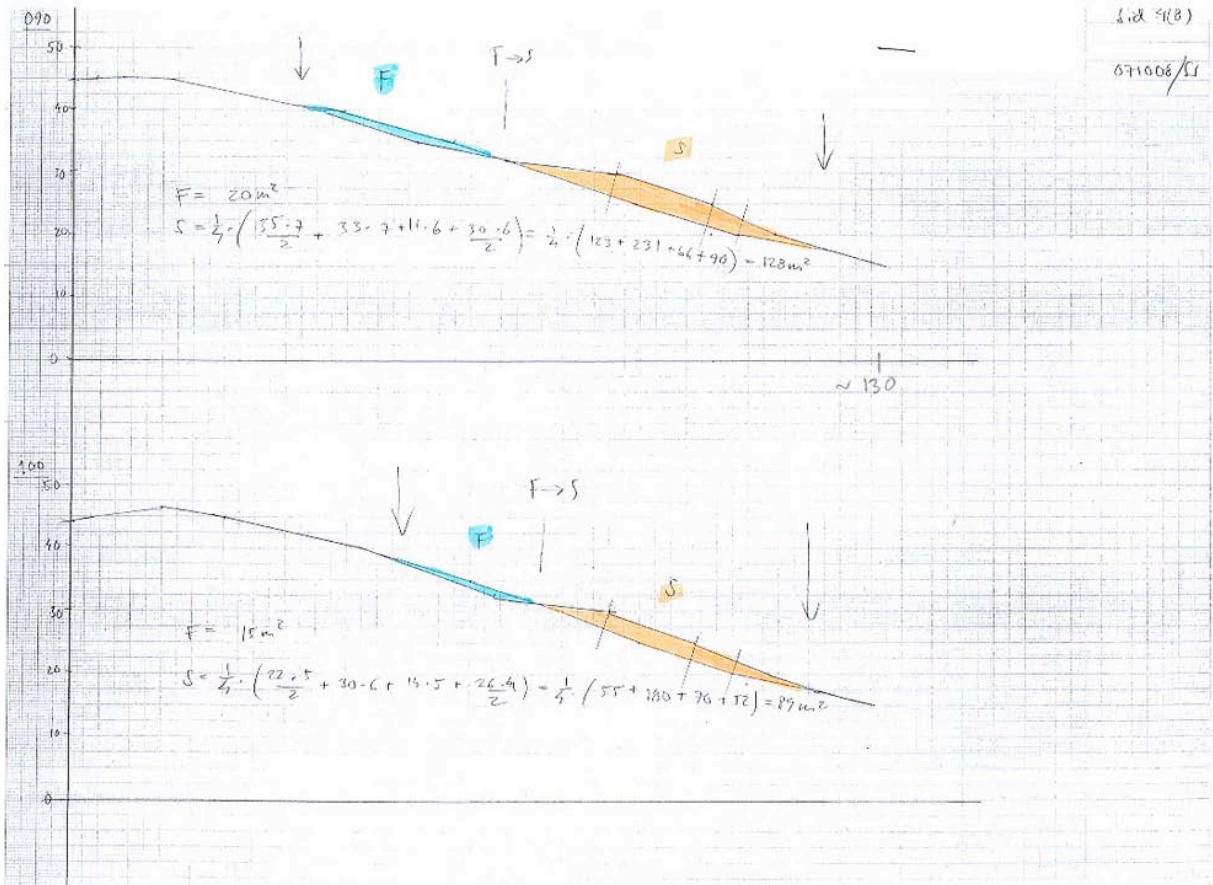 Sid 4(8)
071008/
090
50
40
30
20
10
0
F→S
F
S
F = 20m²
S = 1/4 · (35·7/2 + 33·7 + 11·6 + 30·6/2) = 1/4 · (123 + 231 + 66 + 90) = 128m²
~ 130
100
50
40
30
20
10
0
F→S
F
S
F = 15m²
S = 1/4 · (22·5/2 + 30·6 + 14·5 + 26·4/2) = 1/4 · (55 + 180 + 70 + 52) = 89m²